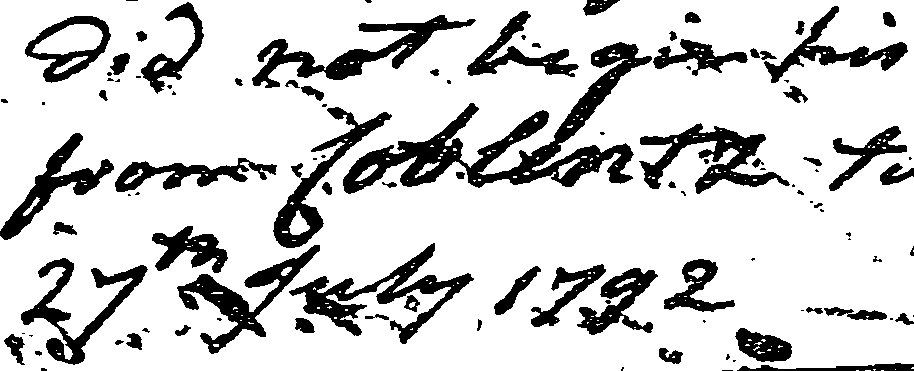 did not begin his
from Coblentz
27th July 1792